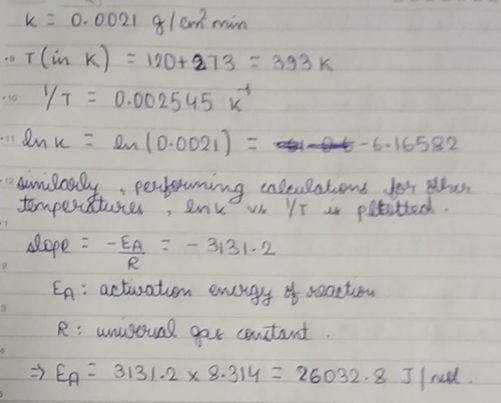 k = 0.0021 g/cm² min
T (in K) = 120+273 = 393 K
1/T = 0.002545 K⁻¹
ln k = ln (0.0021) = -6.16582
similarly, performing calculations for other
temperatures, ln k vs 1/T is plotted.
slope = -E_A/R = -3131.2
E_A : activation energy of reaction
R : universal gas constant.
⇒ E_A = 3131.2 × 8.314 = 26032.8 J/mol.